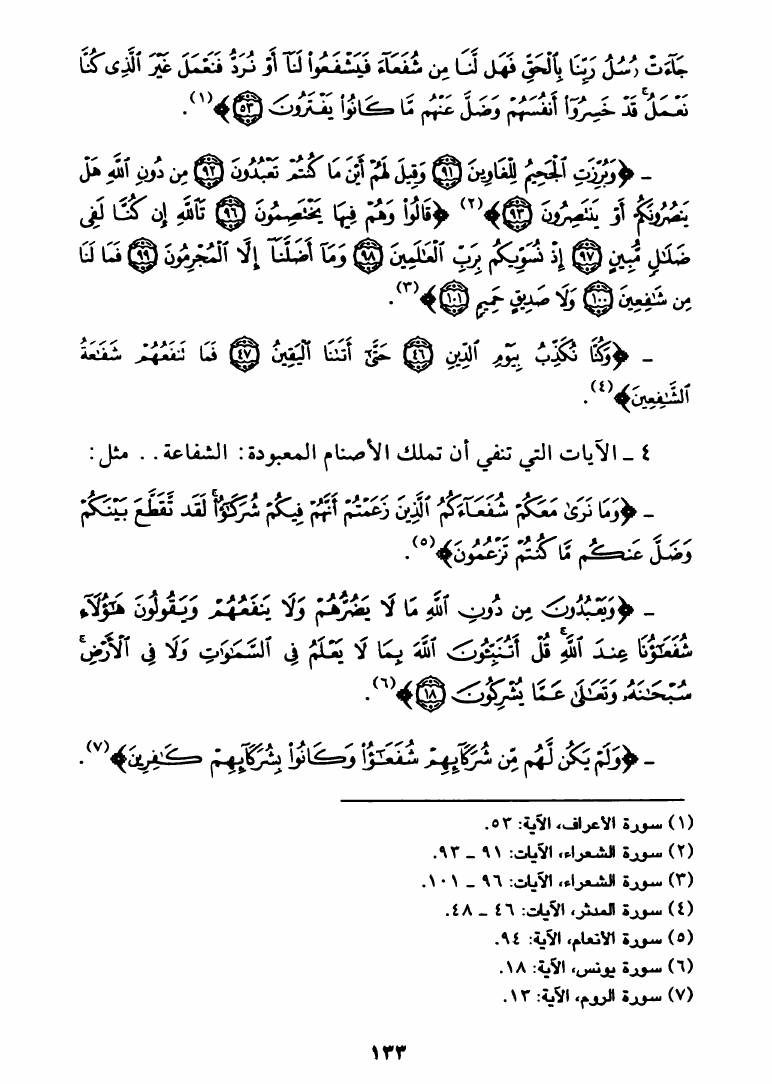 جَآءَتْ رُسُلُ رَبِّنَا بِٱلْحَقِّ فَهَل لَّنَا مِن شُفَعَآءَ فَيَشْفَعُوا۟ لَنَآ أَوْ نُرَدُّ فَنَعْمَلَ غَيْرَ ٱلَّذِى كُنَّا
نَعْمَلُ ۚ قَدْ خَسِرُوٓا۟ أَنفُسَهُمْ وَضَلَّ عَنْهُم مَّا كَانُوا۟ يَفْتَرُونَ ۝٥٣﴾(١).
ـ ﴿وَبُرِّزَتِ ٱلْجَحِيمُ لِلْغَاوِينَ ۝٩١ وَقِيلَ لَهُمْ أَيْنَ مَا كُنتُمْ تَعْبُدُونَ ۝٩٢ مِن دُونِ ٱللَّهِ هَلْ
يَنصُرُونَكُمْ أَوْ يَنتَصِرُونَ ۝٩٣﴾(٢) ﴿قَالُوا۟ وَهُمْ فِيهَا يَخْتَصِمُونَ ۝٩٦ تَٱللَّهِ إِن كُنَّا لَفِى
ضَلَـٰلٍ مُّبِينٍ ۝٩٧ إِذْ نُسَوِّيكُم بِرَبِّ ٱلْعَـٰلَمِينَ ۝٩٨ وَمَآ أَضَلَّنَآ إِلَّا ٱلْمُجْرِمُونَ ۝٩٩ فَمَا لَنَا
مِن شَـٰفِعِينَ ۝١٠٠ وَلَا صَدِيقٍ حَمِيمٍ ۝١٠١﴾(٣).
ـ ﴿وَكُنَّا نُكَذِّبُ بِيَوْمِ ٱلدِّينِ ۝٤٦ حَتَّىٰٓ أَتَىٰنَا ٱلْيَقِينُ ۝٤٧ فَمَا تَنفَعُهُمْ شَفَـٰعَةُ
ٱلشَّـٰفِعِينَ﴾(٤).
٤ ـ الآيات التي تنفي أن تملك الأصنام المعبودة: الشفاعة . . مثل:
ـ ﴿وَمَا نَرَىٰ مَعَكُمْ شُفَعَآءَكُمُ ٱلَّذِينَ زَعَمْتُمْ أَنَّهُمْ فِيكُمْ شُرَكَـٰٓؤُا۟ ۚ لَقَد تَّقَطَّعَ بَيْنَكُمْ
وَضَلَّ عَنكُم مَّا كُنتُمْ تَزْعُمُونَ﴾(٥).
ـ ﴿وَيَعْبُدُونَ مِن دُونِ ٱللَّهِ مَا لَا يَضُرُّهُمْ وَلَا يَنفَعُهُمْ وَيَقُولُونَ هَـٰٓؤُلَآءِ
شُفَعَـٰٓؤُنَا عِندَ ٱللَّهِ ۚ قُلْ أَتُنَبِّـُٔونَ ٱللَّهَ بِمَا لَا يَعْلَمُ فِى ٱلسَّمَـٰوَٰتِ وَلَا فِى ٱلْأَرْضِ ۚ
سُبْحَـٰنَهُۥ وَتَعَـٰلَىٰ عَمَّا يُشْرِكُونَ ۝١٨﴾(٦).
ـ ﴿وَلَمْ يَكُن لَّهُم مِّن شُرَكَآئِهِمْ شُفَعَـٰٓؤُا۟ وَكَانُوا۟ بِشُرَكَآئِهِمْ كَـٰفِرِينَ﴾(٧).
(١) سورة الأعراف، الآية: ٥٣.
(٢) سورة الشعراء، الآيات: ٩١ ـ ٩٣.
(٣) سورة الشعراء، الآيات: ٩٦ ـ ١٠١.
(٤) سورة المدثر، الآيات: ٤٦ ـ ٤٨.
(٥) سورة الأنعام، الآية: ٩٤.
(٦) سورة يونس، الآية: ١٨.
(٧) سورة الروم، الآية: ١٣.
١٣٣